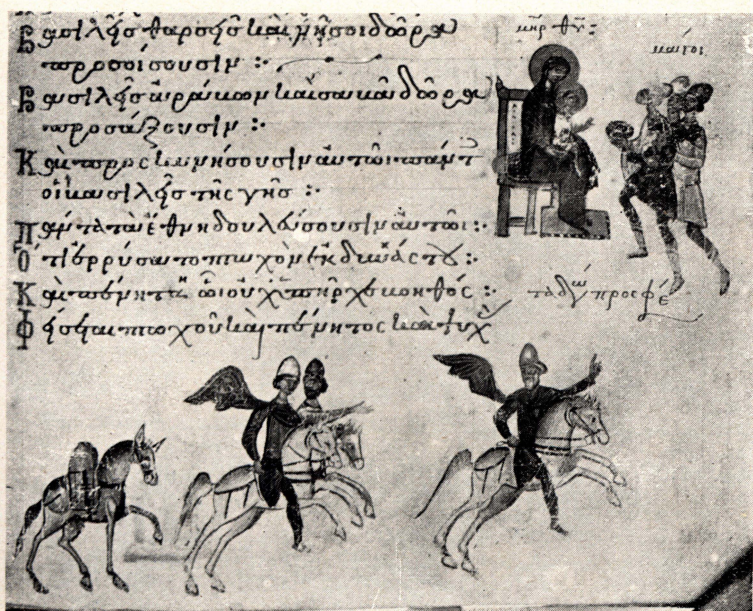 Βασιλεῖς θαρσεῖς καὶ νῆσοι δῶρα
προσοίσουσιν :·
Βασιλεῖς ἀράβων καὶ σαβὰ δῶρα
προσάξουσιν :·
Καὶ προσκυνήσουσιν αὐτῶι πάντ
οἱ βασιλεῖς τῆς γῆς :·
Πάντα τὰ ἔθνη δουλεύσουσιν αὐτῶι :·
Ὅτι ἐρρύσατο πτωχὸν ἐκ δυνάστου :·
Καὶ πένητα ὧι οὐχ ὑπῆρχε βοηθός :·
Φείσεται πτωχοῦ καὶ πένητος καὶ ψυχ
μηρ θυ :·
μάγοι
τὰ δῶ προσφέ